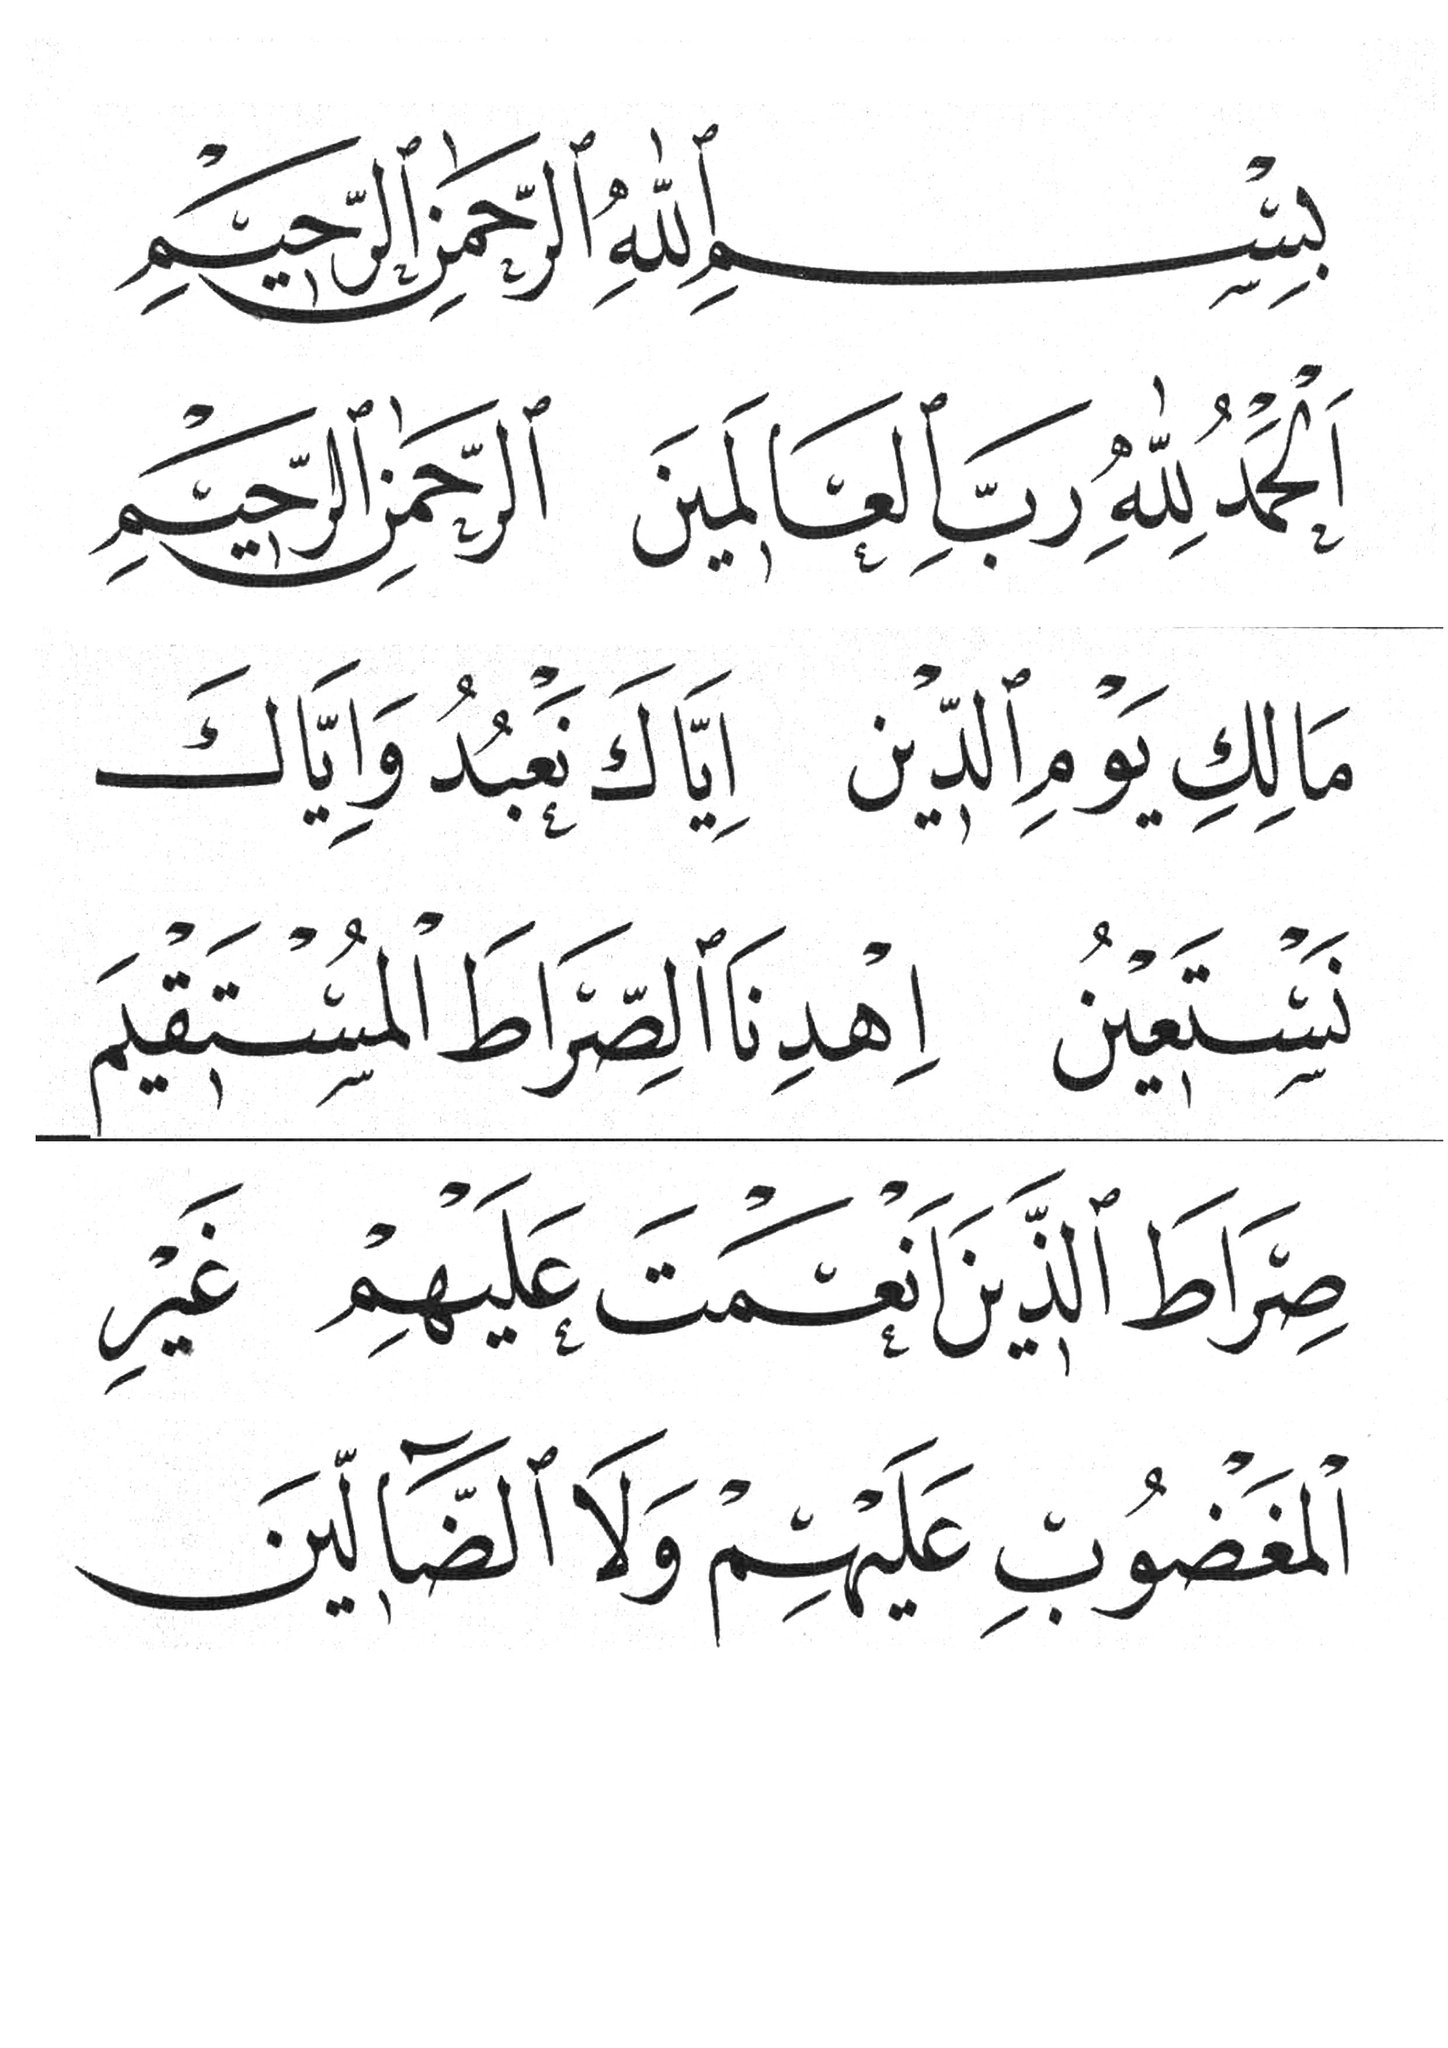 بِسْمِ ٱللّٰهِ ٱلرَّحْمٰنِ ٱلرَّحِيْمِ
اَلْحَمْدُ لِلّٰهِ رَبِّ ٱلْعَالَمِينَ ٱلرَّحْمٰنِ ٱلرَّحِيْمِ
مَالِكِ يَوْمِ ٱلدِّيْنِ اِيَّاكَ نَعْبُدُ وَاِيَّاكَ
نَسْتَعِيْنُ اِهْدِنَا ٱلصِّرَاطَ الْمُسْتَقْيمَ
صِرَاطَ ٱلَّذِينَ اَنْعَمْتَ عَلَيْهِمْ غَيْرِ
الْمَغْضُوبِ عَلَيْهِمْ وَلَا ٱلضَّآلِّينَ